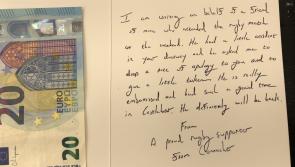 20 EURO
20
I am writing on behalf of a friend
of mine who attended the rugby match
at the weekend. He had a little accident
in your and he asked me to
drop a note of apology to you and to
give a little . He is really
embarrassed and had such a good time
in . He definitely will be back.
From
A proud rugby supporter
from